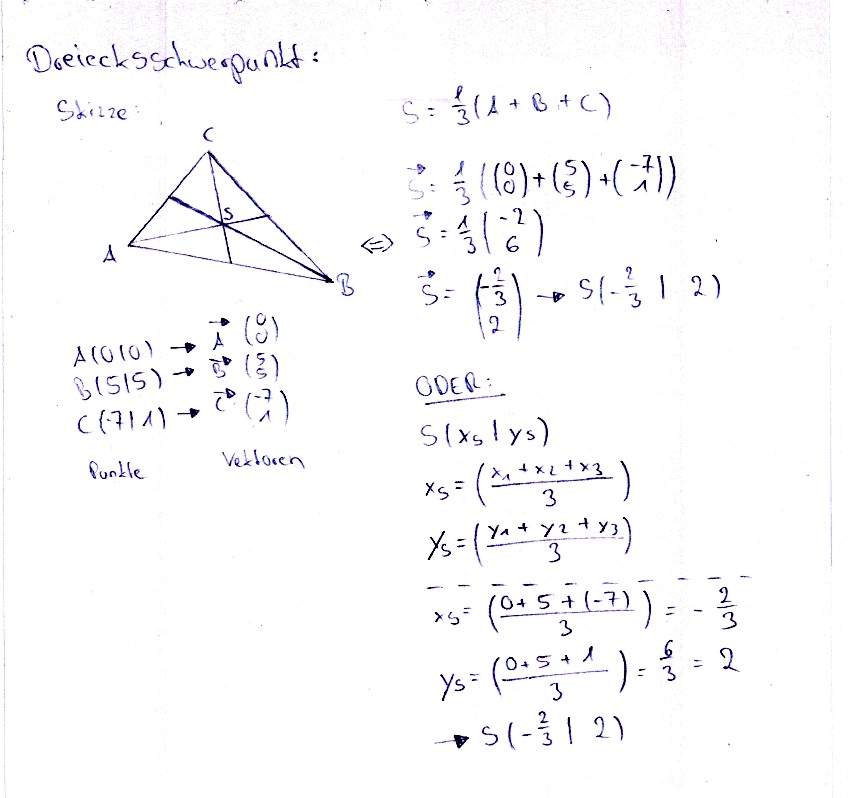 Dreiecksschwerpunkt:
Skizze:
C
S
A
B
A(0|0) → A⃗ (0 0)
B(5|5) → B⃗ (5 5)
C(-7|1) → C⃗ (-7 1)
Punkte Vektoren
S = 1/3 (A + B + C)
S⃗ = 1/3 ((0 0) + (5 5) + (-7 1))
⇔ S⃗ = 1/3 (-2 6)
S⃗ = (-2/3 2) → S(-2/3 | 2)
ODER:
S(xs | ys)
xs = (x1 + x2 + x3 / 3)
ys = (y1 + y2 + y3 / 3)
xs = (0 + 5 + (-7) / 3) = - 2/3
ys = (0 + 5 + 1 / 3) = 6/3 = 2
→ S(-2/3 | 2)